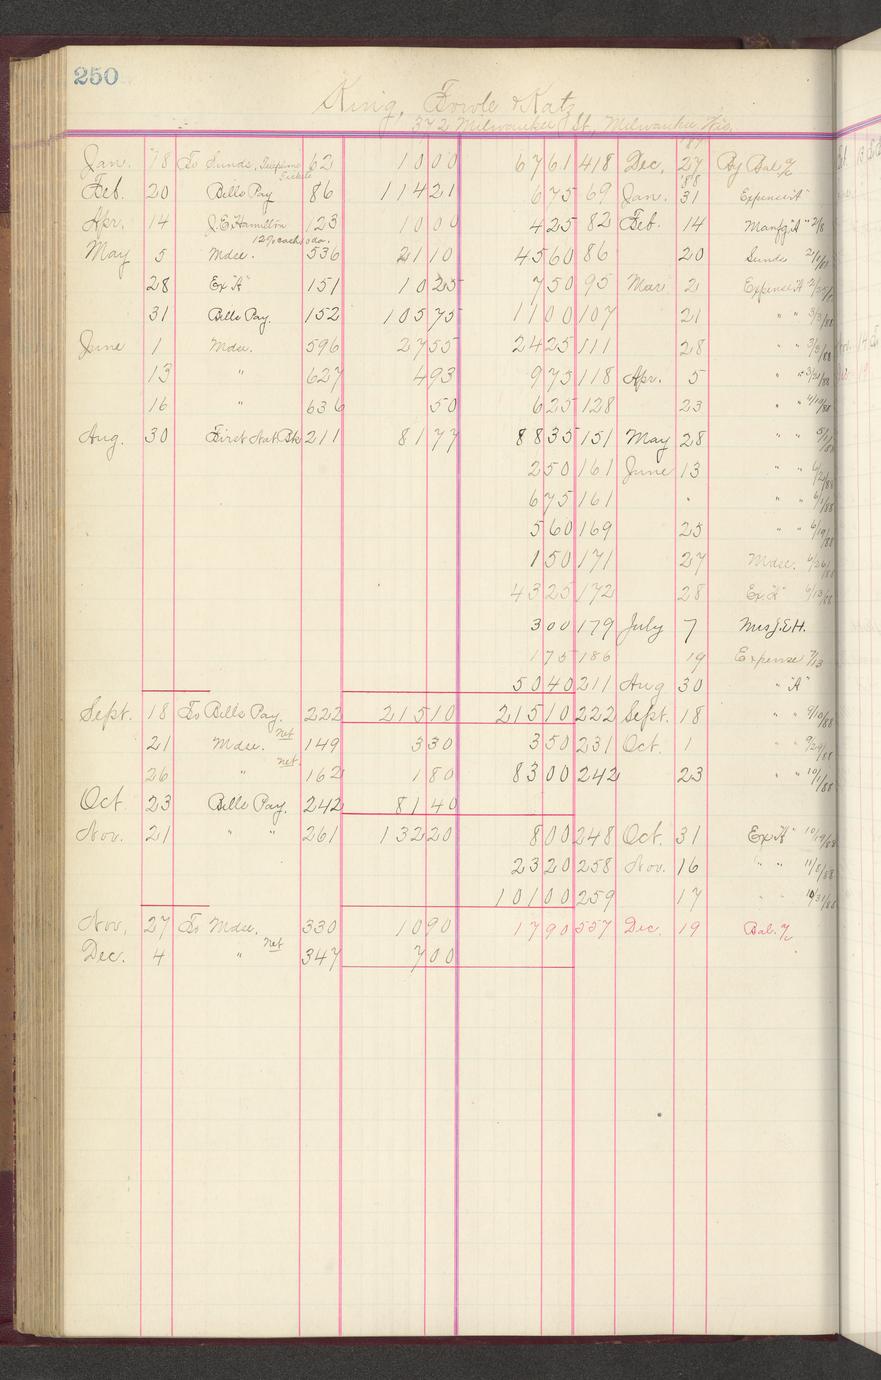 250
King, Fowle & Katz
372 Milwaukee St, Milwaukee Wis.
'87
Jan. 18 To Sunds, Telephone Tickets 62 10 00 67 61 418 Dec. 27 By Bal %
'88
Feb. 20 Bills Pay 86 114 21 6 75 69 Jan. 31 Expense "A"
Apr. 14 J.E. Hamilton 123 10 00 4 25 82 Feb. 14 Manfg "A" 2/8
12% cash
May 5 Mdse. 536 21 10 45 60 86 20 Sunds
28 Ex "A" 151 10 25 7 50 95 Mar 2 Expense "A"
31 Bills Pay. 152 105 75 11 00 107 21 " " 3/3/88
June 1 Mdse. 596 27 55 24 25 111 28 " " 3/5/88
13 " 627 4 93 9 75 118 Apr. 5 " " 3/31/88
16 " 636 50 6 25 128 23 " " 4/19/88
Aug. 30 First Nat Bk 211 81 77 88 35 151 May 28 " " 5/1/88
2 50 161 June 13 " "
6 75 161 " " " 6/1/88
5 60 169 25 " " 6/19/88
1 50 171 27 Mdse. 6/26/88
43 25 172 28 Ex "A" 6/13/88
3 00 179 July 7 Mrs J.E.H.
1 75 186 19 Expense 7/13
50 40 211 Aug 30 " "A"
Sept. 18 To Bills Pay. 222 215 10 215 10 222 Sept. 18 " " 9/10/88
21 Mdse. net 149 3 30 3 50 231 Oct. 1 " " 9/29/88
26 " net 162 1 80 83 00 242 23 " " 10/1/88
Oct. 23 Bills Pay. 242 81 40
Nov. 21 " " 261 132 20 8 00 248 Oct. 31 Ex "A" 10/19/88
23 20 258 Nov. 16 " " 11/8/88
101 00 259 17 " " 10/31/88
Nov. 27 To Mdse. 330 10 90 17 90 557 Dec. 19 Bal. %
Dec. 4 " net 347 7 00